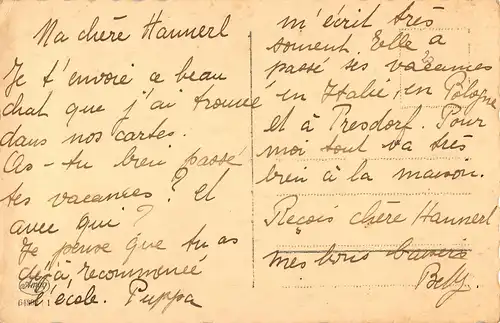 Ma chère Hannerl
Je t'envoie ce beau
chat que j'ai trouvé
dans nos cartes.
As-tu bien passé
tes vacances? et
avec qui?
Je pense que tu as
déjà recommencé
l'école. Puppa
m'écrit très
souvent. Elle a
passé ses vacances
en Italie, en Pologne
et à Presdorf. Pour
moi tout va très
bien à la maison.
Reçois chère Hannerl
mes bons baisers
Belly
Amag